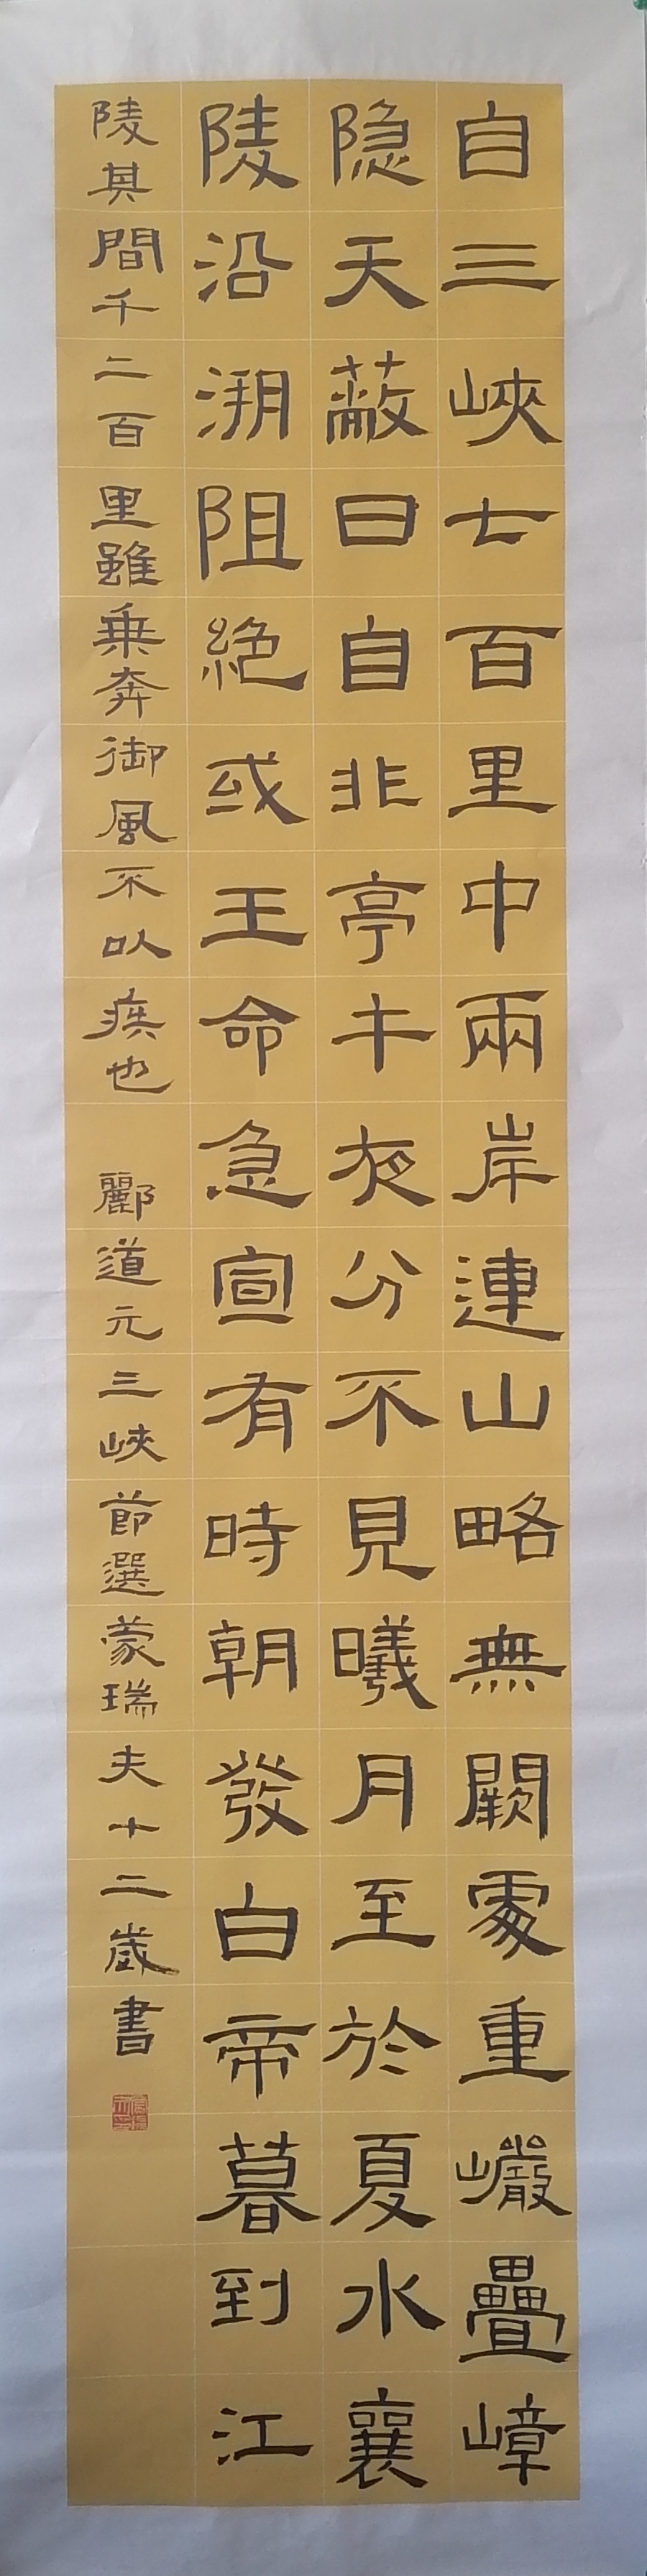 自三峽七百里中兩岸連山略無闕處重巖疊嶂
隐天蔽日自非亭午夜分不見曦月至於夏水襄
陵沿溯阻絕或王命急宣有時朝發白帝暮到江
陵其間千二百里雖乗奔御風不以疾也 酈道元三峽節選蒙瑞夫十二歲書